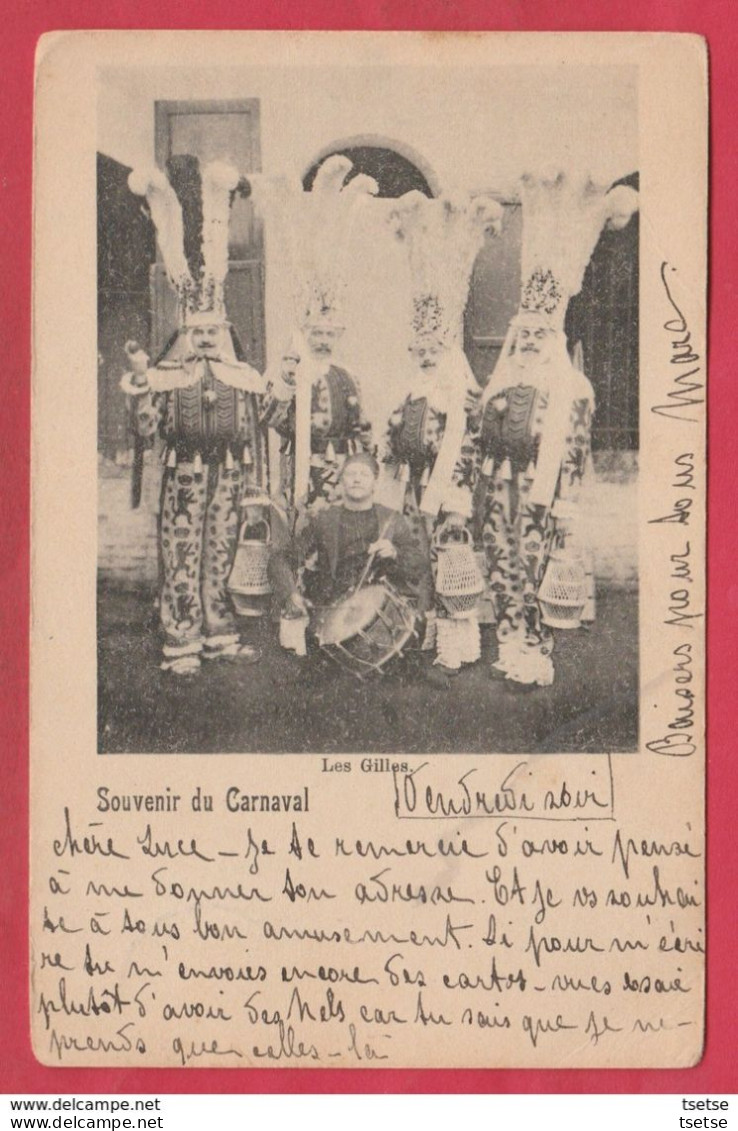 Les Gilles.
Souvenir du Carnaval
Vendredi soir
Chère Luce – Je te remercie d'avoir pensé
à me donner ton adresse. Et Je vs souhai
te à tous bon amusement. Si pour m'écri
re tu m'envoies encore des cartes-vues essaie
plutôt d'avoir des Nels car tu sais que je ne
prends que celles-là
Baisers pour tous Marc.
www.delcampe.net
www.delcampe.net
tsetse
tsetse